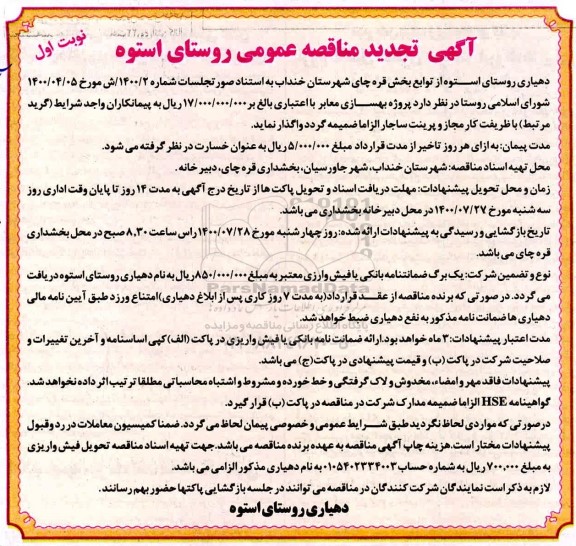 نوبت اول
آگهی تجدید مناقصه عمومی روستای استوه
دهیاری روستای استوه از توابع بخش قره چای شهرستان خنداب به استناد صورتجلسات شماره ۱۴۰۰/۲/ش مورخ ۱۴۰۰/۰۴/۰۵
شورای اسلامی روستا در نظر دارد پروژه بهسازی معابر با اعتباری بالغ بر ۱۷/۰۰۰/۰۰۰/۰۰۰ ریال به پیمانکاران واجد شرایط (گرید
مرتبط) با ظرفیت کار مجاز و پرینت ساجار الزاما ضمیمه گردد واگذار نماید.
مدت پیمان: به ازای هر روز تاخیر از مدت قرارداد مبلغ ۵/۰۰۰/۰۰۰ ریال به عنوان خسارت در نظر گرفته می شود.
محل تهیه اسناد مناقصه: شهرستان خنداب، شهر جاورسیان، بخشداری قره چای، دبیرخانه .
زمان و محل تحویل پیشنهادات: مهلت دریافت اسناد و تحویل پاکت ها از تاریخ درج آگهی به مدت ۱۴ روز تا پایان وقت اداری روز
سه شنبه مورخ ۱۴۰۰/۰۷/۲۷ در محل دبیرخانه بخشداری می باشد.
تاریخ بازگشایی و رسیدگی به پیشنهادات ارائه شده: روز چهارشنبه مورخ ۱۴۰۰/۰۷/۲۸ راس ساعت ۸,۳۰ صبح در محل بخشداری
قره چای می باشد.
نوع و تضمین شرکت: یک برگ ضمانتنامه بانکی یا فیش وارزی معتبر به مبلغ ۸۵۰/۰۰۰/۰۰۰ ریال به نام دهیاری روستای استوه دریافت
می گردد. در صورتی که برنده مناقصه از عقد قرارداد (به مدت ۷ روز کاری پس از ابلاغ دهیاری) امتناع ورزد طبق آیین نامه مالی
دهیاری ها ضمانت نامه مذکور به نفع دهیاری ضبط خواهد شد.
مدت اعتبار پیشنهادات: ۳ ماه خواهد بود. ارائه ضمانت نامه بانکی یا فیش واریزی در پاکت (الف) کپی اساسنامه و آخرین تغییرات و
صلاحیت شرکت در پاکت (ب) و قیمت پیشنهادی در پاکت (ج) می باشد.
پیشنهادات فاقد مهر و امضاء، مخدوش و لاک گرفتگی و خط خورده و مشروط و اشتباه محاسباتی مطلقا ترتیب اثر داده نخواهد شد.
گواهینامه HSE الزاما ضمیمه مدارک شرکت در مناقصه در پاکت (ب) قرار گیرد.
در صورتی که مواردی لحاظ نگردید طبق شرایط عمومی و خصوصی پیمان لحاظ می گردد. ضمنا کمیسیون معاملات در رد و قبول
پیشنهادات مختار است. هزینه چاپ آگهی مناقصه به عهده برنده مناقصه می باشد. جهت تهیه اسناد مناقصه تحویل فیش واریزی
به مبلغ ۷۰۰,۰۰۰ ریال به شماره حساب ۰۱۰۵۴۰۲۳۳۴۰۰۳ به نام دهیاری مذکور الزامی می باشد.
لازم به ذکر است نمایندگان شرکت کنندگان در مناقصه می توانند در جلسه بازگشایی پاکتها حضور بهم رسانند.
دهیاری روستای استوه